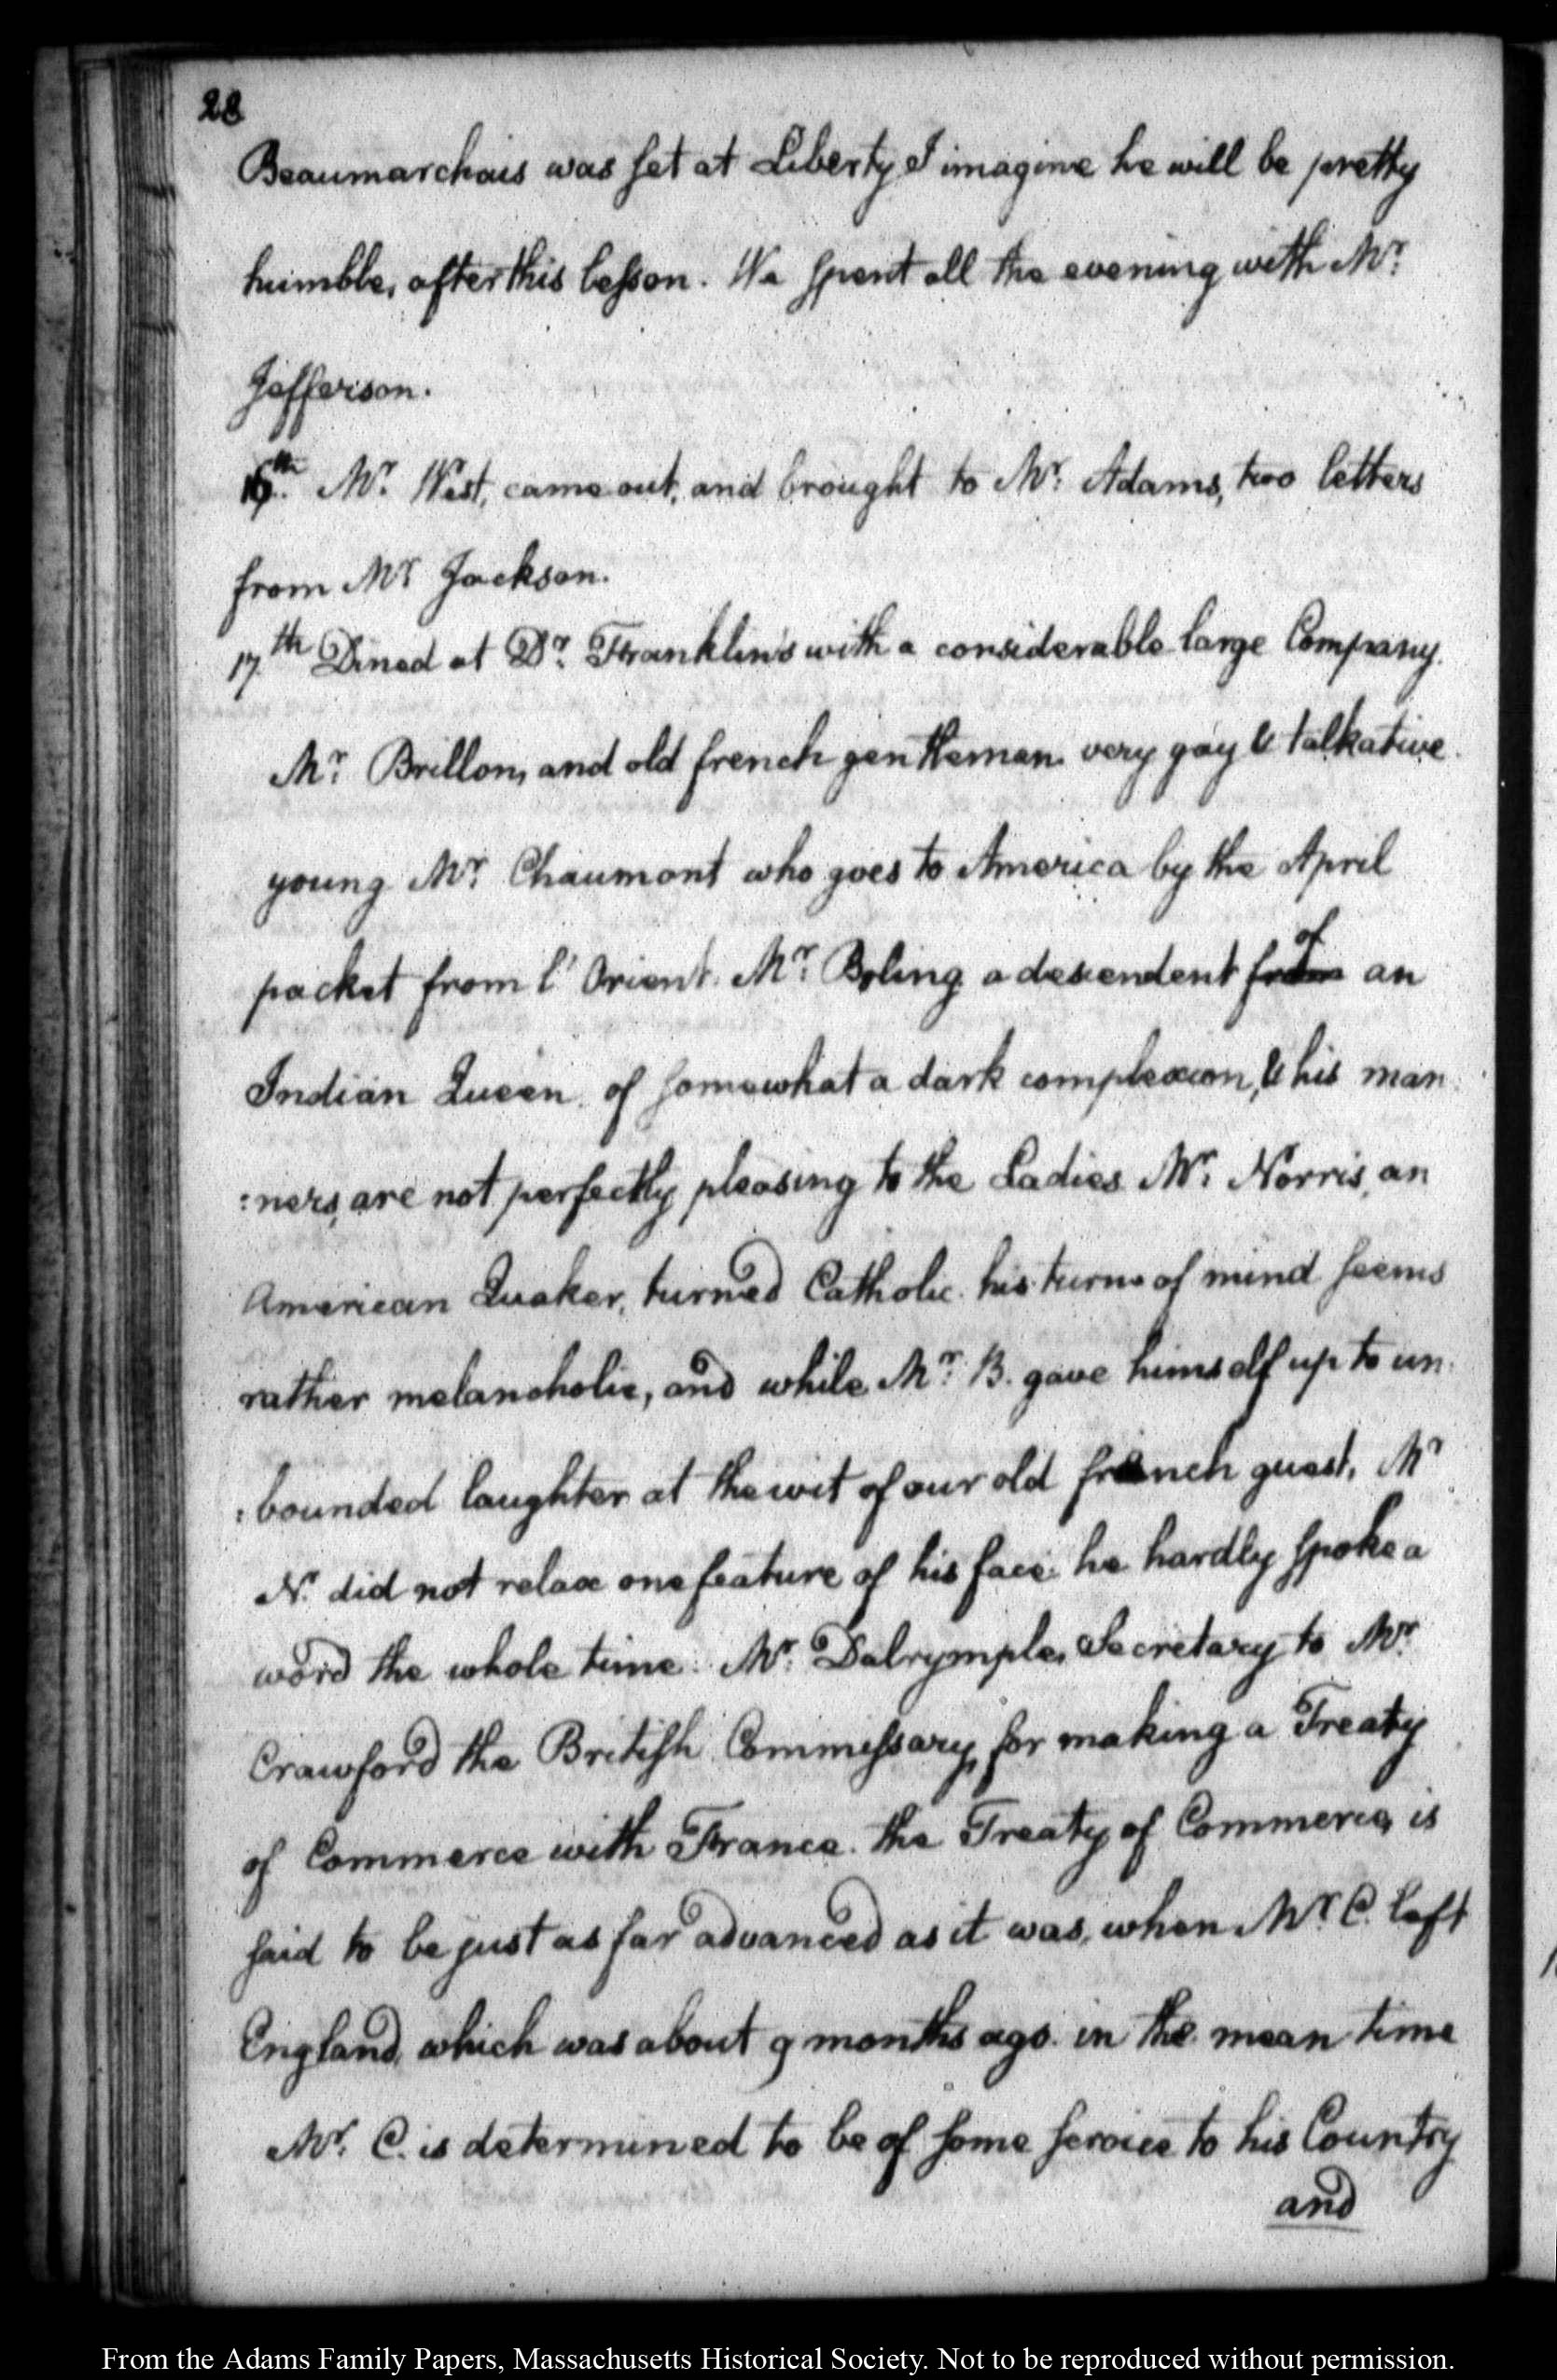 28
Beaumarchais was set at Liberty I imagine he will be pretty
humble, after this lesson. We spent all the evening with Mr.
Jefferson.
16th. Mr. West, came out, and brought to Mr. Adams, two letters
from Mr Jackson.
17th Dined at Dr. Franklin's with a considerable large Company.
Mr. Brillon, and old french gentleman very gay & talkative.
young Mr. Chaumont who goes to America by the April
packet from l'Orient. Mr. Boling a descendent from of an
Indian Queen of somewhat a dark complexion, & his man
:ners, are not perfectly pleasing to the Ladies Mr. Norris, an
American Quaker, turned Catholic. his turn of mind seems
rather melancholic, and while Mr. B. gave himself up to un
:bounded laughter at the wit of our old french guest, Mr
N. did not relax one feature of his face: he hardly spoke a
word the whole time. Mr. Dalrymple, Secretary to Mr.
Crawford the British Commissary, for making a Treaty
of Commerce with France. the Treaty of Commerce, is
said to be just as far advanced as it was, when Mr. C. left
England, which was about 9 months ago. in the mean time
Mr. C. is determined to be of some service to his Country
and
From the Adams Family Papers, Massachusetts Historical Society. Not to be reproduced without permission.